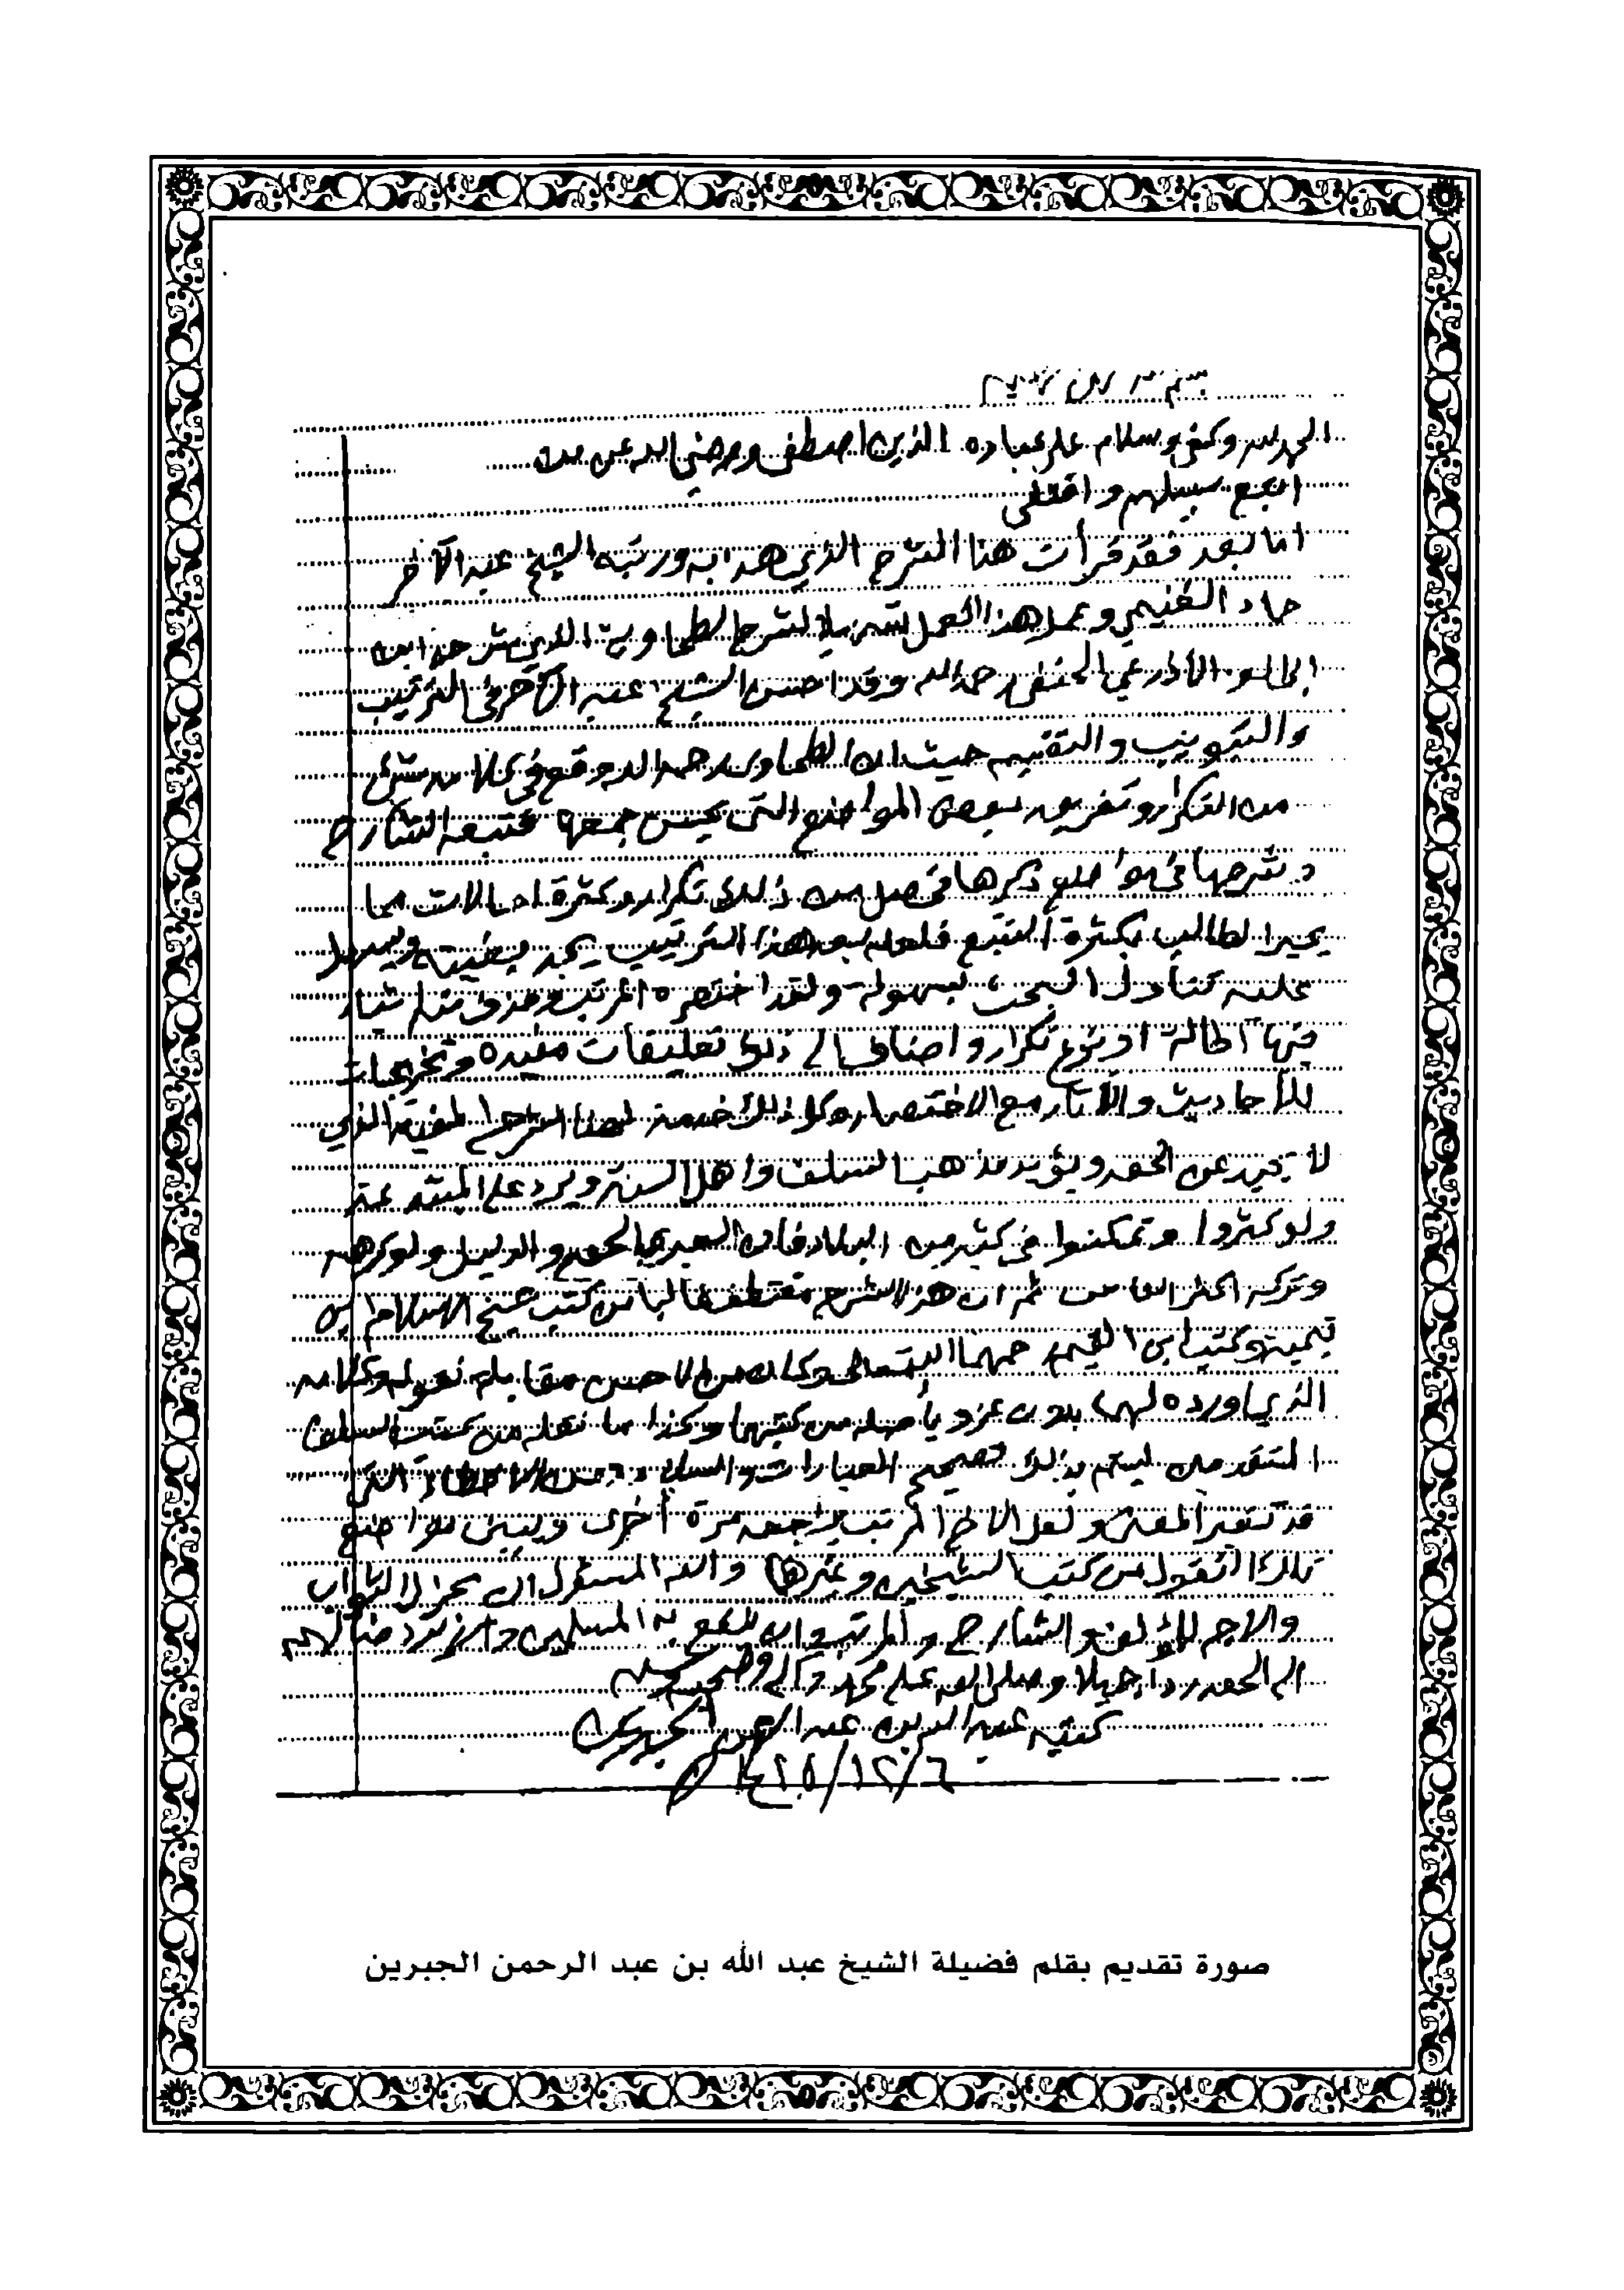 بسم الله الرحمن الرحيم
الحمد لله وكفى وسلام على عباده الذين اصطفى ورضي الله عن من
اتبع سبيلهم واقتفى
اما بعد فقد قرأت هذا الشرح الذي هذبه ورتبه الشيخ عبد الآخر
حماد الغنيمي وعمله هذا لشرح الطحاوية الذي شرحه ابن
ابي العز الأذرعي الحنفي رحمه الله وقد احسن الشيخ عبد الآخر في الترتيب
والتبويب والتقسيم حيث ان الطحاوي رحمه الله وقع في كلامه شيء
من التكرار وتفريق بعض المواضع التي يحسن جمعها فتبعه الشارح
وشرحها في مواضع ذكرها فحصل من ذلك تكرار وكثرة احالات مما
يحير الطالب بكثرة التتبع فلعله بعد هذا الترتيب يجد بغيته ويسهل
عليه تناول البحث بسهولة ولقد اختصره المرتب وحذف منه اشياء
فيها اطالة او نوع تكرار واضاف الى ذلك تعليقات مفيده وتخريجات
للأحاديث والآثار مع الاختصار وكل ذلك خدمة لهذا الشرح الذي
لا يحيد عن الحق ويؤيد مذهب السلف واهل السنة ويرد على المبتدعة
ولو كثروا وتمكنوا في كثير من البلاد فان العبرة بالحق والدليل ولو كرهه
وتركه اكثر الناس ثم ان هذا الشرح مقتطف غالبا من كتب شيخ الاسلام ابن
تيمية وكتب ابن القيم رحمهما الله تعالى وكان من الاحسن مقابلة نقوله وكلامه
الذي اورده لهما بدون عزو بأصله من كتبهما وكذا ما نقله من كتب السلف
المتقدمين ليتم بذلك تصحيح العبارات والسلامة من الاخطاء التي
قد تغير المعنى ولعل الاخ المرتب يراجعه مرة أخرى ويبين مواضع
تلك النقول من كتب الشيخين وغيرها والله المسئول ان يجزل الثواب
والاجر للمؤلف والشارح والمرتب وان ينفع به المسلمين وان يرد ضالهم
الى الحق ردا جميلا وصلى الله على محمد وآله وصحبه وسلم
كتبه عبد الله بن عبد الرحمن الجبرين
١٤٢٥/١٢/٦
صورة تقديم بقلم فضيلة الشيخ عبد الله بن عبد الرحمن الجبرين